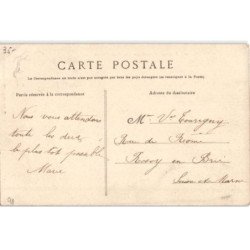 35-
CARTE POSTALE
La Correspondance au recto n'est pas acceptée par tous les pays étrangers (Se renseigner à la Poste).
Partie réservée à la correspondance
Adresse du destinataire
Nous vous attendons
toute les deux
le plus tôt possible
Marie
Mme Vve Tourigny
Rue de
Rozoy en Brie
Seine et Marne